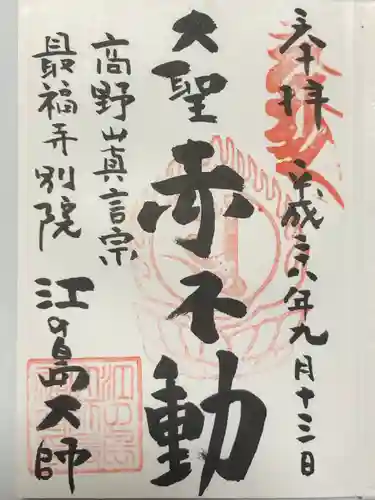 奉拝 平成二六年九月十三日
大聖赤不動
高野山真言宗
最福寺別院
江の島大師